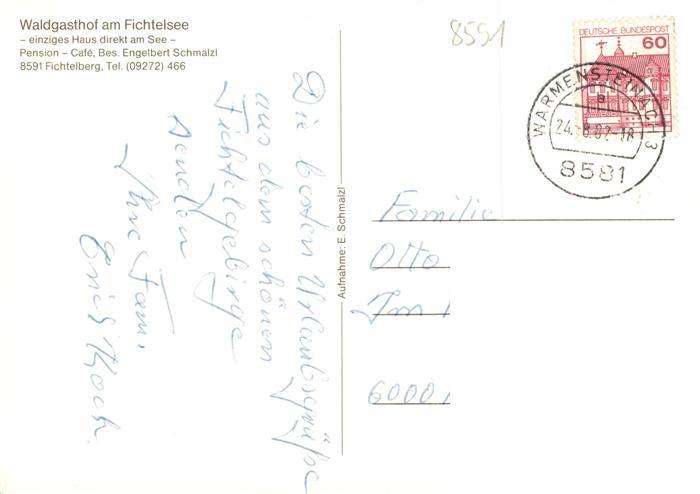 Waldgasthof am Fichtelsee
– einziges Haus direkt am See –
Pension – Café, Bes. Engelbert Schmalzl
8591 Fichtelberg, Tel. (09272) 466
8591
DEUTSCHE BUNDESPOST
60
WARMENSTEINACH 3
a
24.-8.82-18
8581
Die besten Urlaubsgrüße
aus dem schönen
Fichtelgebirge
senden
Ihre Fam.
Erich Koch
Aufnahme: E. Schmalzl
Familie
Otto
Im
6000